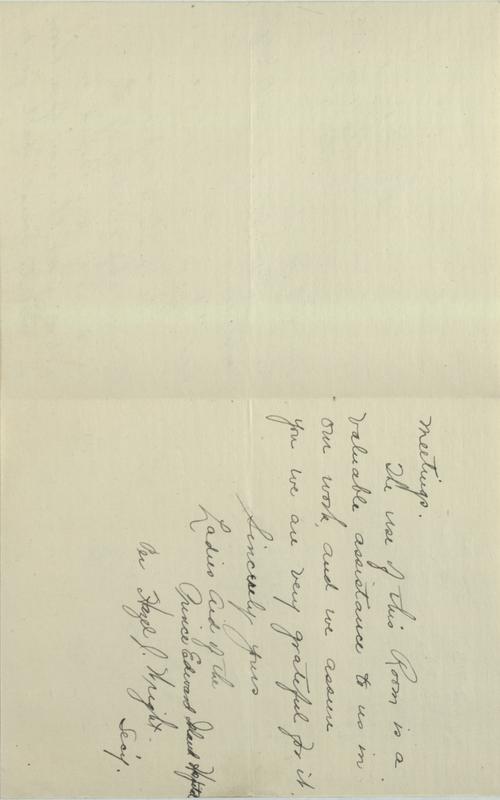 Meetings.
The use of this Room is a
valuable assistance to us in
our work, and we assure
you we are very grateful for it.
Sincerely yours
Ladies Aid of the
Prince Edward Island Hospital
Per Hazel J. Wright.
Sec'y.